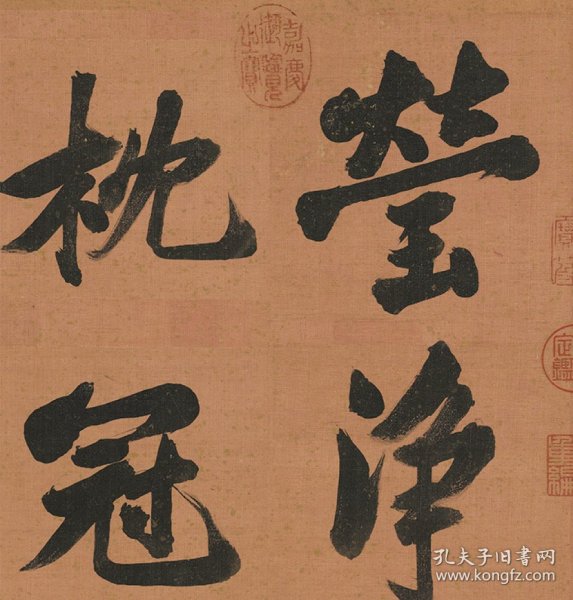 嘉慶御覽之寶
瑩净
枕冠
定鑑
重編
孔夫子旧书网
www.kongfz.com